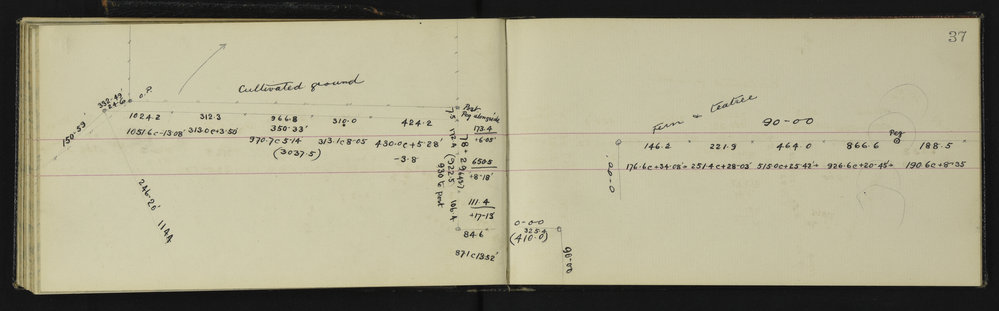 37
332·49'
24·6
O.P.
Cultivated ground
150·59'
246·20'
114A
1024.2 312.3 966.8 310.0 424.2
1051.6c-13.08' 313.0c+3.50' 350·33' 
970.7c5·14 313.1c8·05 430.0c+5·28'
(3037.5) -3.8
Post
Peg alongside
7.5
173.4
+6·05'
650.5
+8·18'
111.4
+17·13'
84.6
871c13.52'
(922.5
930 to post
106.4
0-00
325.4
(410.0)
90·00
Fern & teatree
90-00
Peg
146.2 221.9 464.0 866.6 188.5
176.6c+34·08'= 251.4c+28·03' 515.0c+25·42'= 926.6c+20·45'= 190.6c+8·35